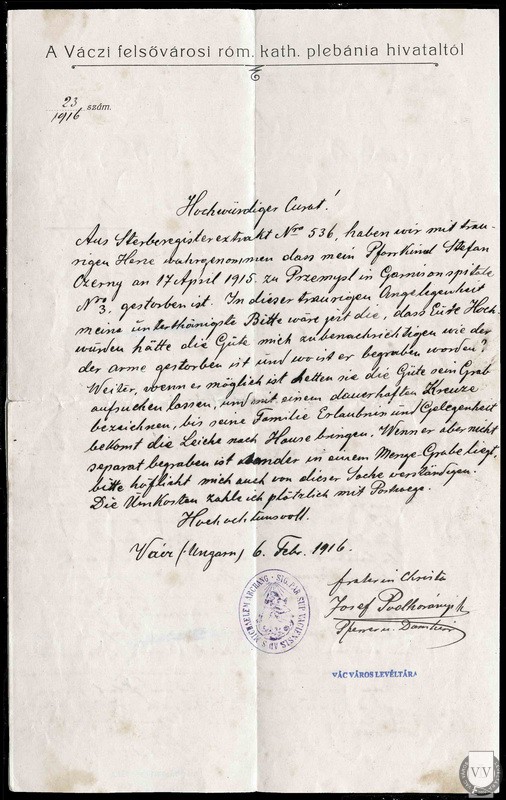 A Váczi felsővárosi róm. kath. plebánia hivataltól
23
1916 szám.
Hochwürdiger Curat!
Aus Sterberegisterextrakt Nro 536, haben wir mit trau-
rigen Herze wahrgenommen dass mein Pfarrkind Stefan
Czerny an 17 April 1915. zu Przemysl in Garnisonspitale
Nro 3. gestorben ist. In dieser traurigen Angelegenheit
meine unterthänigste Bitte wäre jetzt die, dass Eure Hoch-
würden hätte die Güte mich zu benachrichtigen wie der
der arme gestorben ist und wo ist er begraben worden?
Weiter, wenn es möglich ist hetten sie die Güte sein Grab
aufsuchen lassen, und mit einem dauerhaften Kreuze
bezeichnen, bis seine Familie Erlaubnis und Gelegenheit
bekomt die Leiche nach Hause bringen. Wenn er aber nicht
separat begraben ist sonder in einem Menge-Grabe liegt,
bitte höflichst mich auch von dieser Sache verständigen.
Die Umkosten zahle ich plötzlich mit Postwege.
Hochachtunsvoll.
Vácz (Ungarn) 6. Febr. 1916.
frater in Christo
Josef Podhorányi
Pfarrer
SIG. PAR. SUP. VACIENSIS AD S. MICHAELEM ARCHANG.
VÁC VÁROS LEVÉLTÁRA
VV